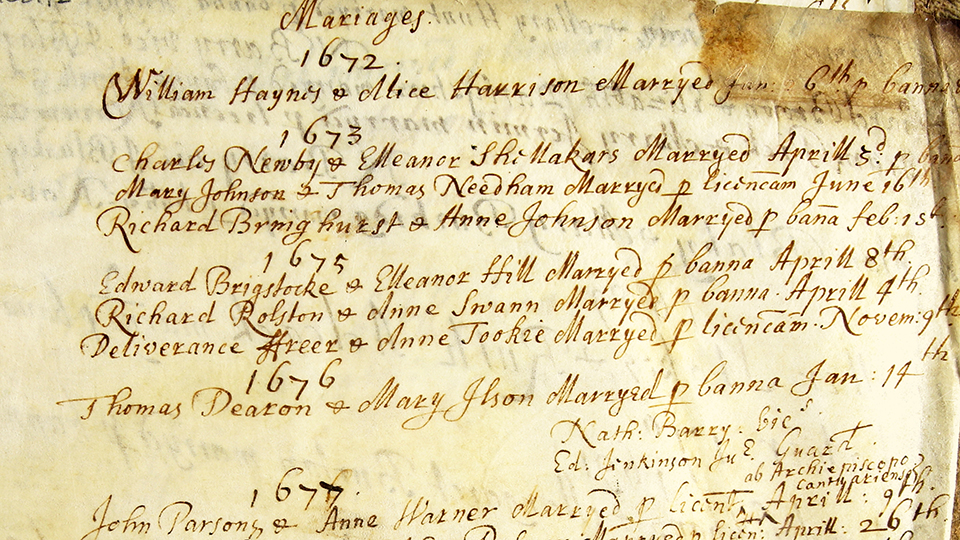 Mariages.
1672.
William Haynes & Alice Harrison Marryed Jan: 6th p banna
1673
Charles Newby & Elleanor Shellakars Marryed Aprill 3d: p bana
Mary Johnson & Thomas Needham Marryed p licencam June 16th
Richard Bringhurst & Anne Johnson Marryed p bana feb: 1st.
1675
Edward Brigstocke & Elleanor Hill Marryed p banna Aprill 8th.
Richard Rolston & Anne Swann Marryed p banna. Aprill 4th.
Deliverance ffreer & Anne Tookie Marryed p licencam. Novem: 9th
1676
Thomas Dearon & Mary Ilson Marryed p banna Jan: 14th
Nath: Barry: vics.
Ed: Jenkinson Guard
ab Archiepiscopo
Cantuariensi
1677.
John Parsons & Anne Warner Marryed p licent. Aprill: 9th.
p licen: Aprill: 26th.